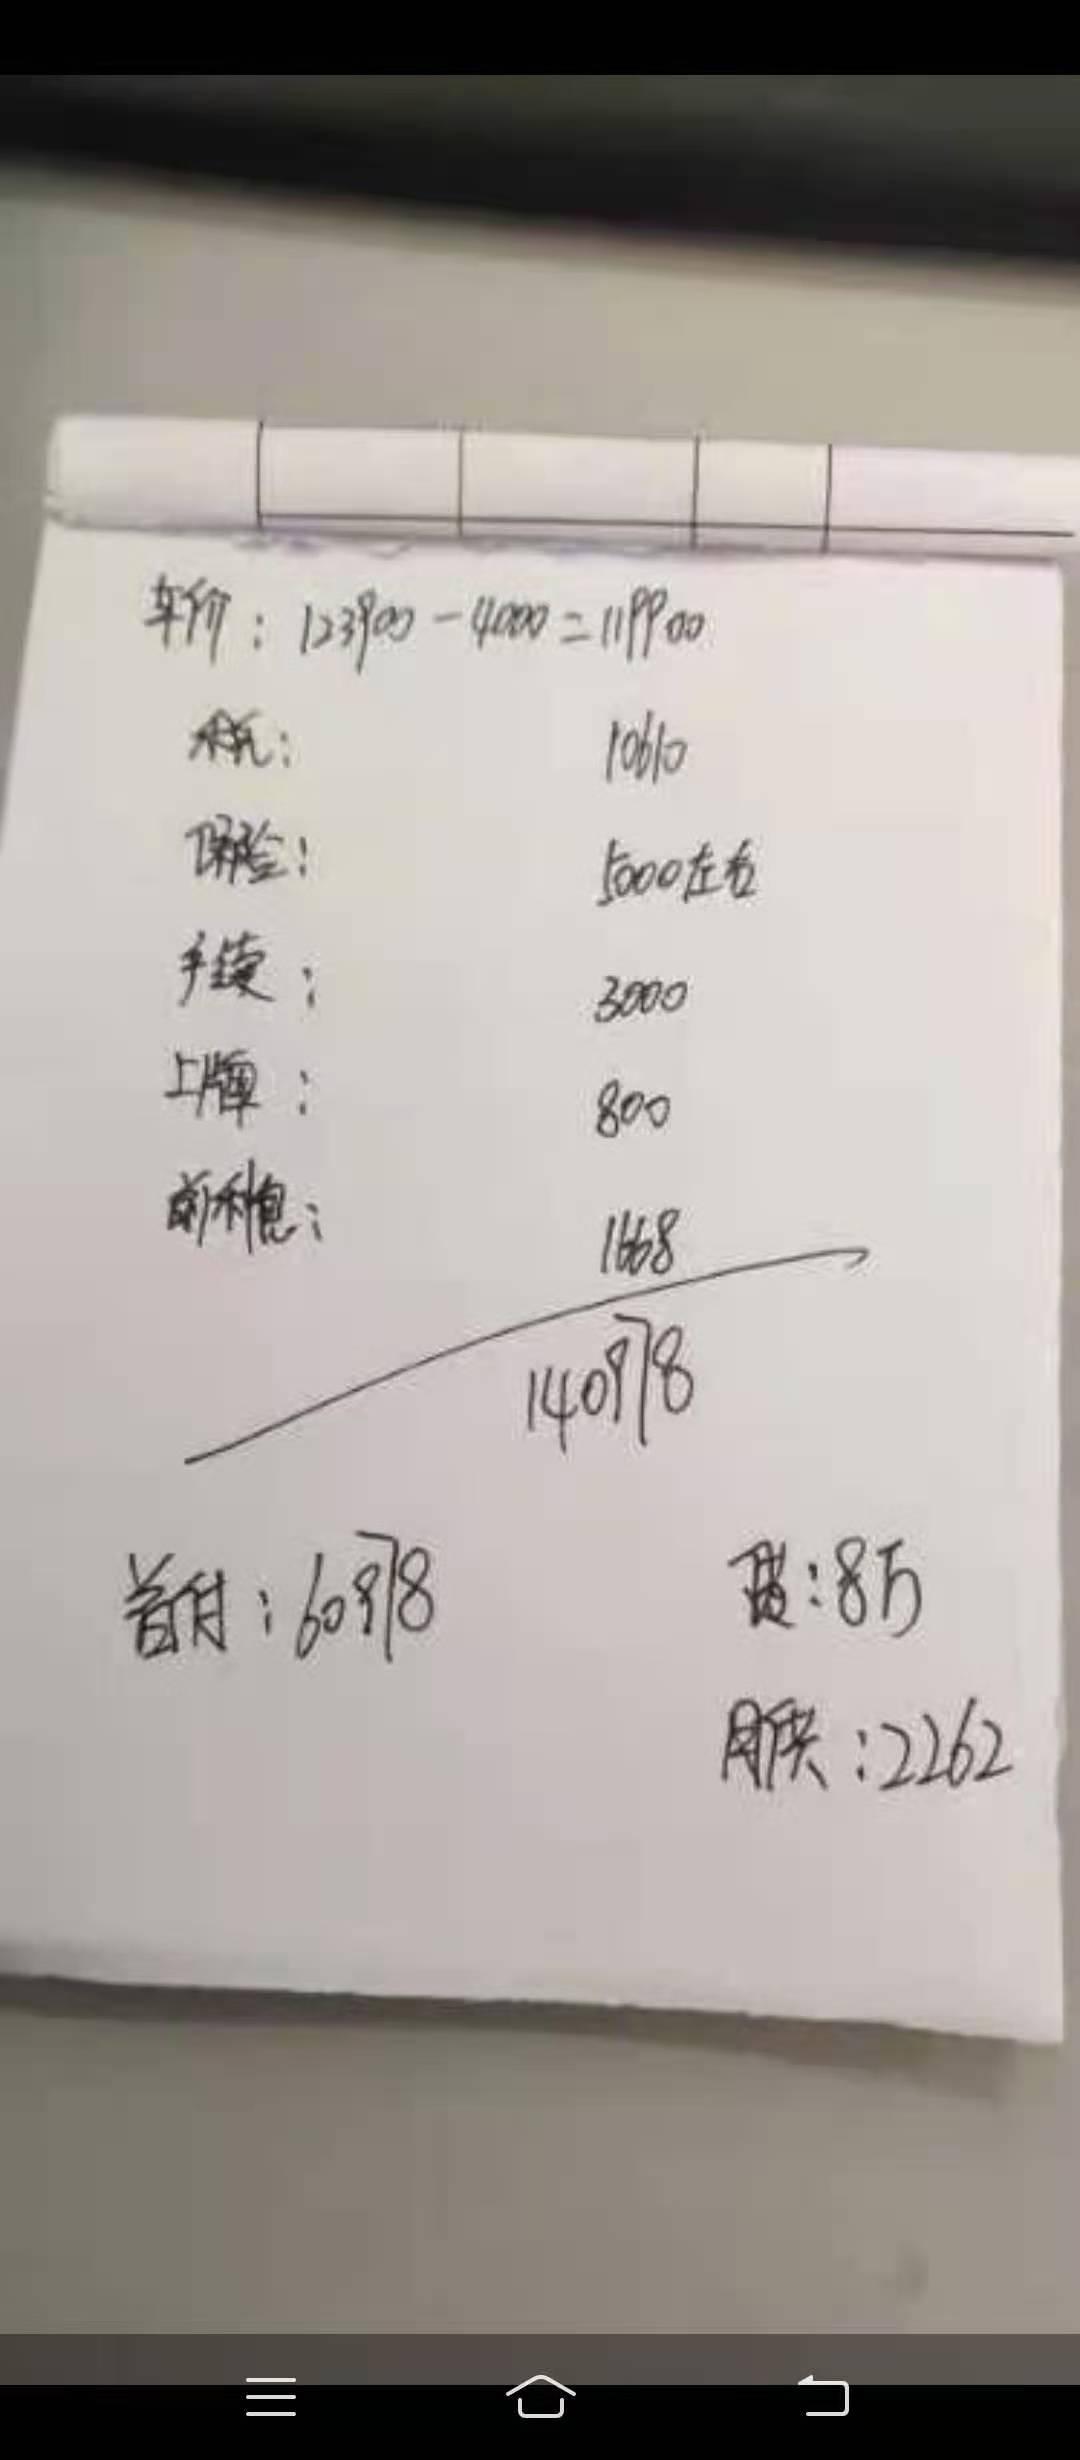 车价：123900-4000=119900
税：10610
保险：5000左右
手续：3000
上牌：800
前利息：1668
140978
首付：60978
贷：8万
月供：2262